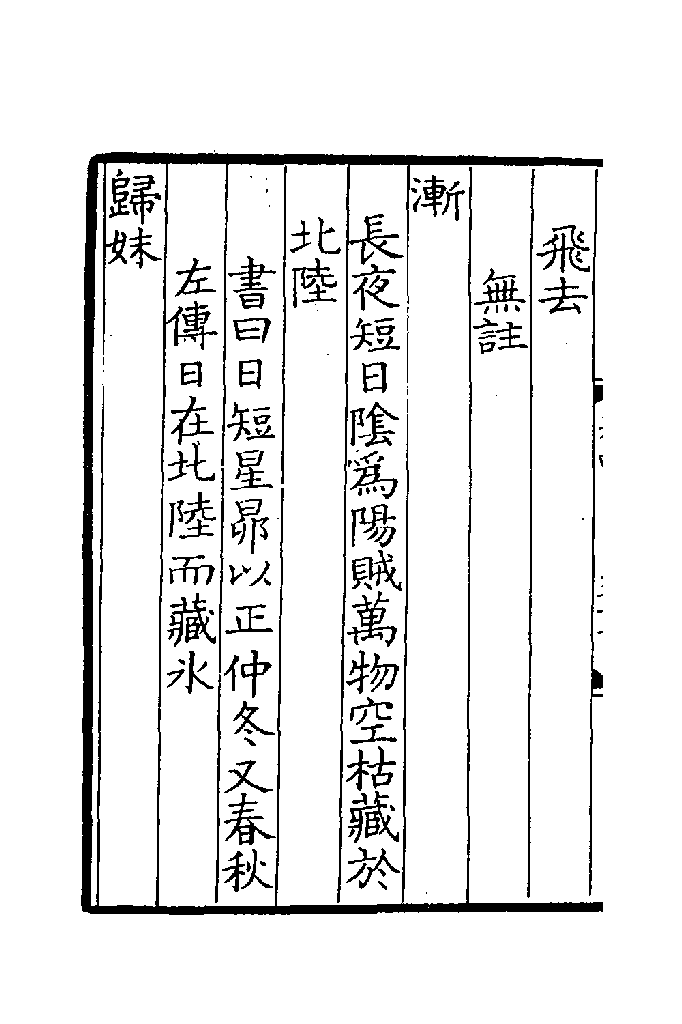 飛去
無註
漸
長夜短日隂爲陽賊萬物空枯藏於
北陸
書曰日短星昴以正仲冬又春秋
左傳日在北陸而藏氷
歸妹